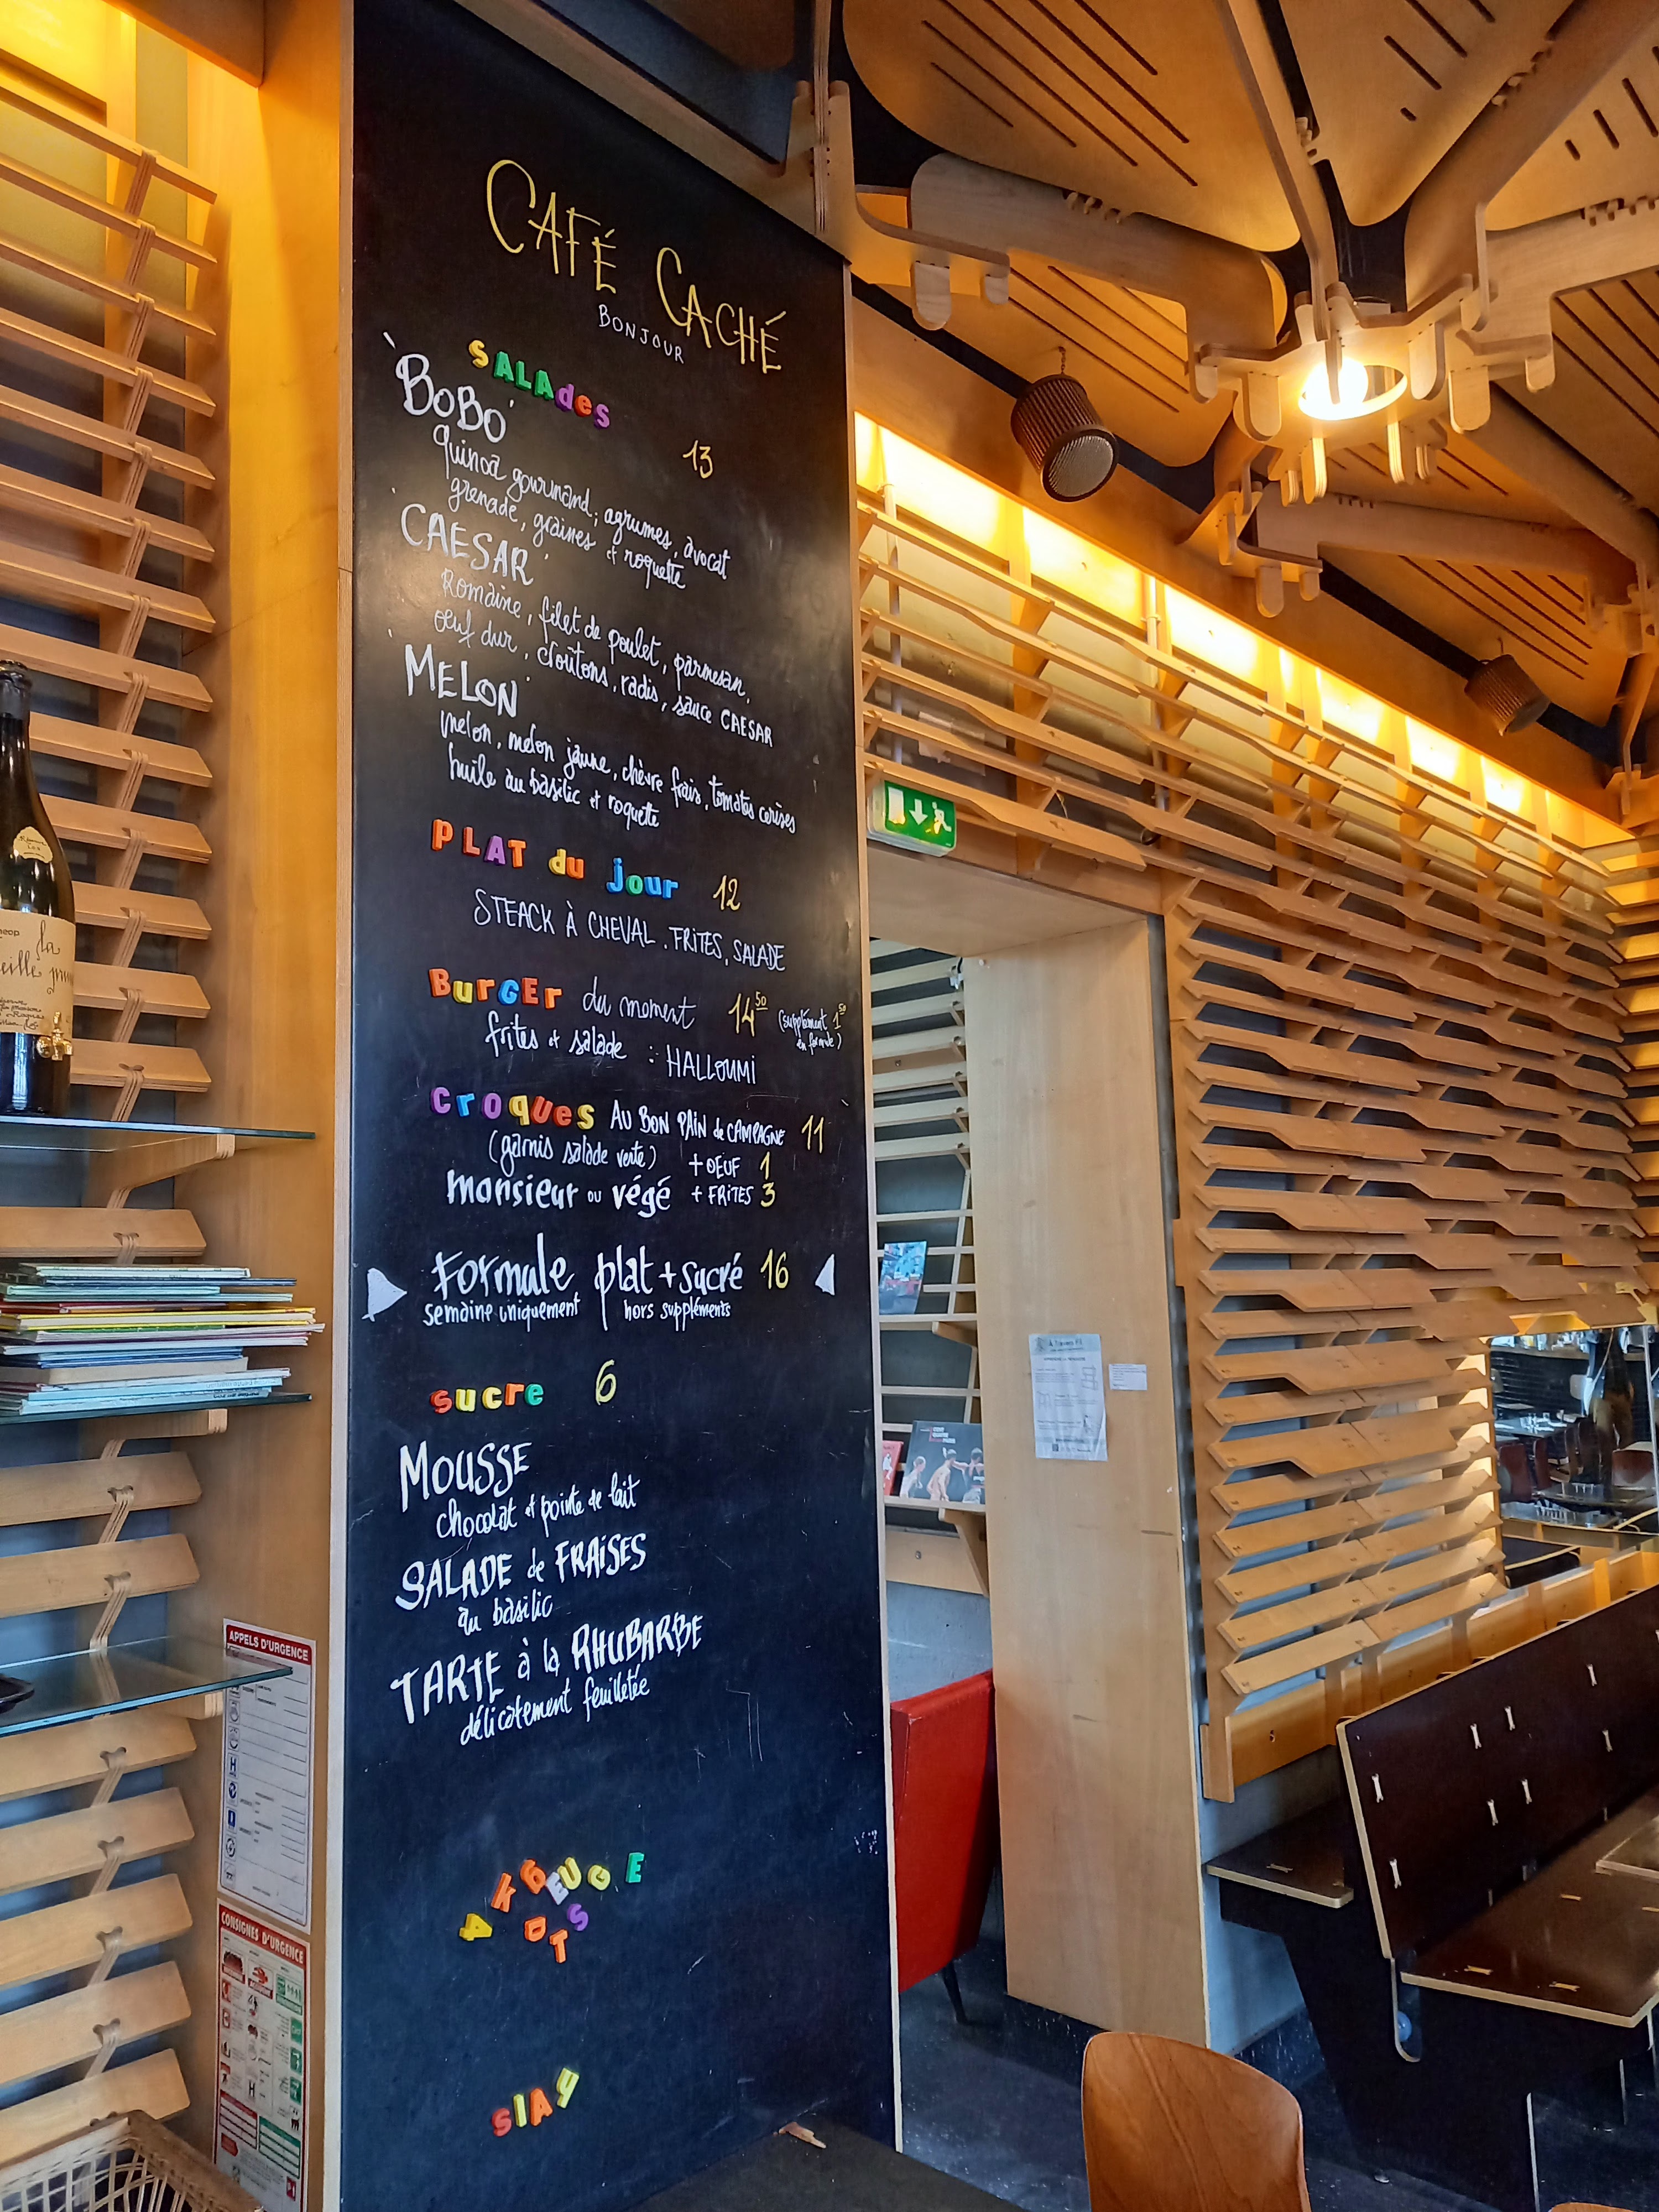 CAFÉ CACHÉ
BONJOUR
SALAdes
'BOBO' 13
quinoa gourmand; agrumes, avocat
grenade, graines et roquette
'CAESAR'
Romaine, filet de poulet, parmesan,
œuf dur, croûtons, radis, sauce CAESAR
'MELON'
melon, melon jaune, chèvre frais, tomates cerises
huile au basilic et roquette
PLAT du jour 12
STEACK À CHEVAL. FRITES, SALADE
BurGEr du moment 14 50 (supplément 1 50
en formule)
frites et salade : HALLOUMI
croques AU BON PAIN de CAMPAGNE 11
(garnis salade verte) + OEUF 1
monsieur ou végé + FRITES 3
Formule plat + sucré 16
semaine uniquement hors suppléments
sucre 6
MOUSSE
chocolat et pointe de lait
SALADE de FRAISES
au basilic
TARTE à la RHUBARBE
délicatement feuilletée
SlAY
la
APPELS D'URGENCE
CONSIGNES D'URGENCE